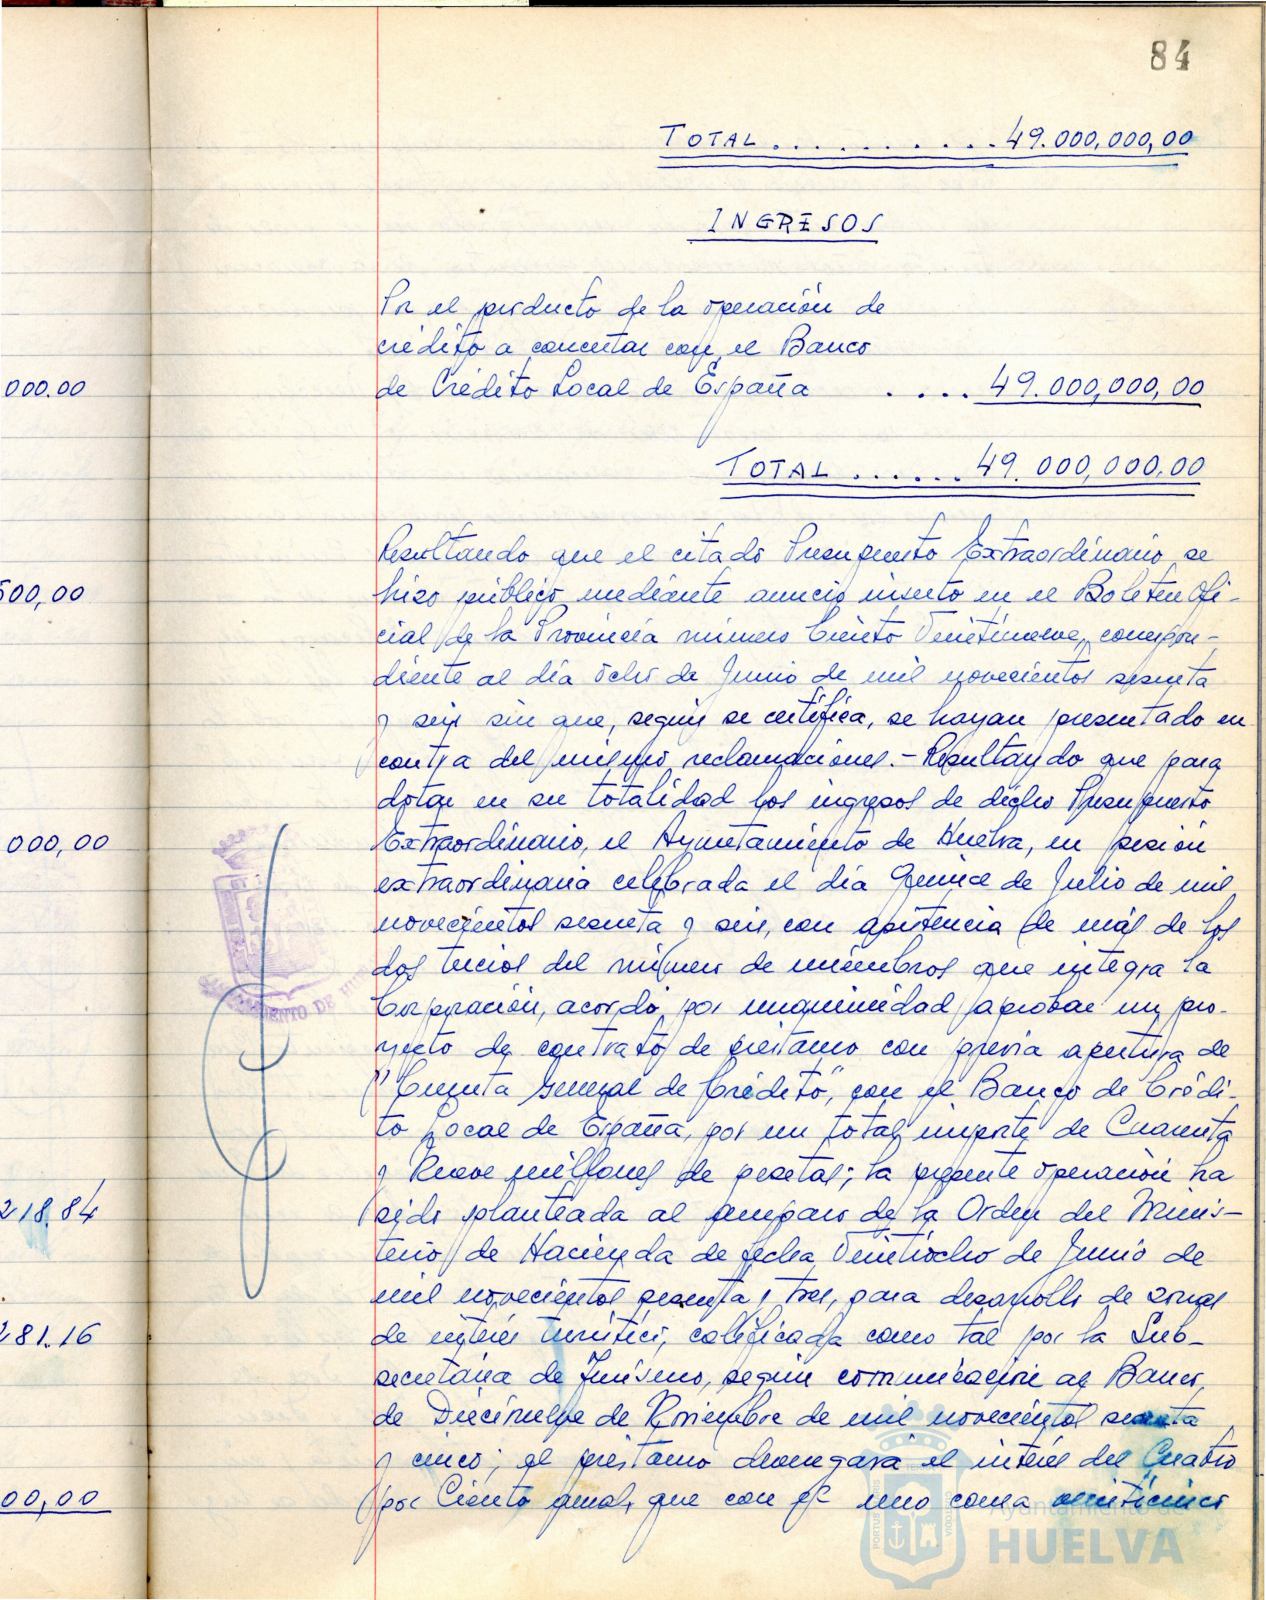 84
TOTAL .......... 49.000,000,00
INGRESOS
Por el producto de la operación de
crédito a concertar con el Banco
000.00
de Crédito Local de España .... 49.000,000,00
TOTAL ...... 49.000,000.00
Resultando que el citado Presupuesto Extraordinario se
500,00
hizo público mediante anuncio inserto en el Boletin Ofi-
cial de la Provincia número Ciento Veintinueve, correspon-
diente al día ocho de Junio de mil novecientos sesenta
y seis sin que, según se certifica, se hayan presentado en
contra del mismo reclamaciones.- Resultando que para
dotar en su totalidad los ingresos de dicho Presupuesto
000,00
Extraordinario, el Ayuntamiento de Huelva, en sesión
extraordinaria celebrada el día Quince de Julio de mil
novecientos sesenta y seis, con asistencia de más de los
dos tercios del número de miembros que integra la
Corporación, acordó por unanimidad aprobar un pro-
yecto de contrato de préstamo con previa apertura de
"Cuenta General de Crédito", con el Banco de Crédi-
to Local de España, por un total importe de Cuarenta
y Nueve millones de pesetas; la presente operación ha
218.84
sido planteada al amparo de la Orden del Minis-
terio de Hacienda de fecha Veintiocho de Junio de
mil novecientos sesenta y tres, para desarrollo de zonas
281.16
de interés turístico, calificada como tal por la Sub-
secretaría de Turismo, según comunicación al Banco,
de Diecinueve de Noviembre de mil novecientos sesenta
y cinco; el préstamo devengará el interés del Cuatro
00,00
por Ciento anual, que con el uno coma veinticinco
AYUNTAMIENTO DE HUELVA
Ayuntamiento de
HUELVA